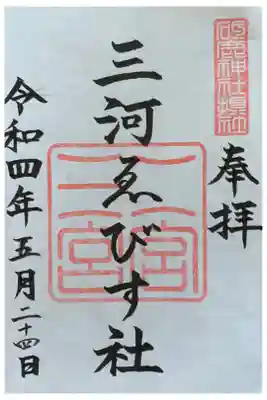 砥鹿神社境内社
奉拝
三河ゑびす社
三河一宮
令和四年五月二十四日